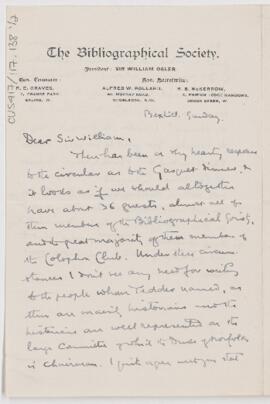 CUS417/117.138 1/2
The Bibliographical Society.
President: SIR WILLIAM OSLER
Hon. Treasurer:
R. E. GRAVES,
EALING, W.
Hon. Secretaries:
ALFRED W. POLLARD,
40, MURRAY ROAD,
WIMBLEDON, S.W.
R. B. McKERROW,
4, PHOENIX LODGE MANSIONS,
BROOK GREEN, W.
Bexhill. Sunday.
Dear Sir William,
There has been a very hearty response
to the circular as to the Gasquet dinner, &
it looks as if we should altogether
have about 36 guests, almost all of
them members of the Bibliographical Society,
and the great majority of them members of
the Colophon Club. Under these circum-
stances I don't see any need for writing
to the people whom Tedder named, as
they are mainly historians and the
historians are well represented on the
large Committee of which the Duke of Norfolk
is Chairman. I quite agree with you that